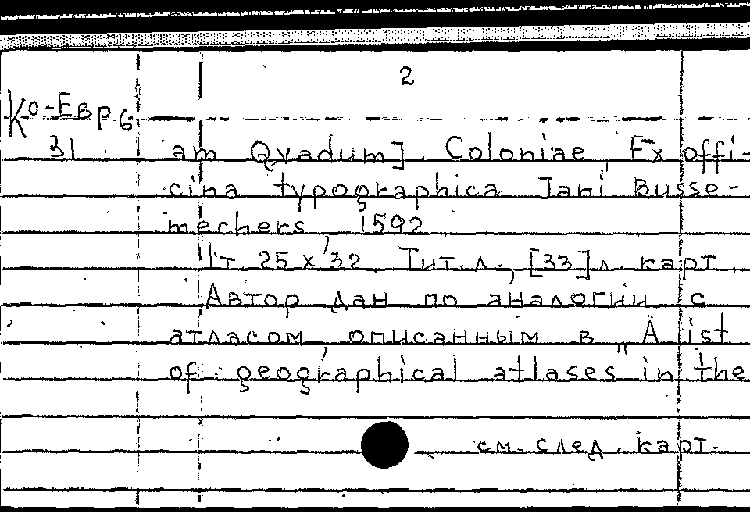 2
Ко-Евр.6
31
am Qvadum]. Coloniae, Ex offi-
cina typographica Jani Busse-
mechers, 1592
1т. 25 х 32. Тит.л., [33] л. карт.
Автор дан по аналогии с
атласом, описанным в „A list
of geographical atlases in the
см. след. карт.